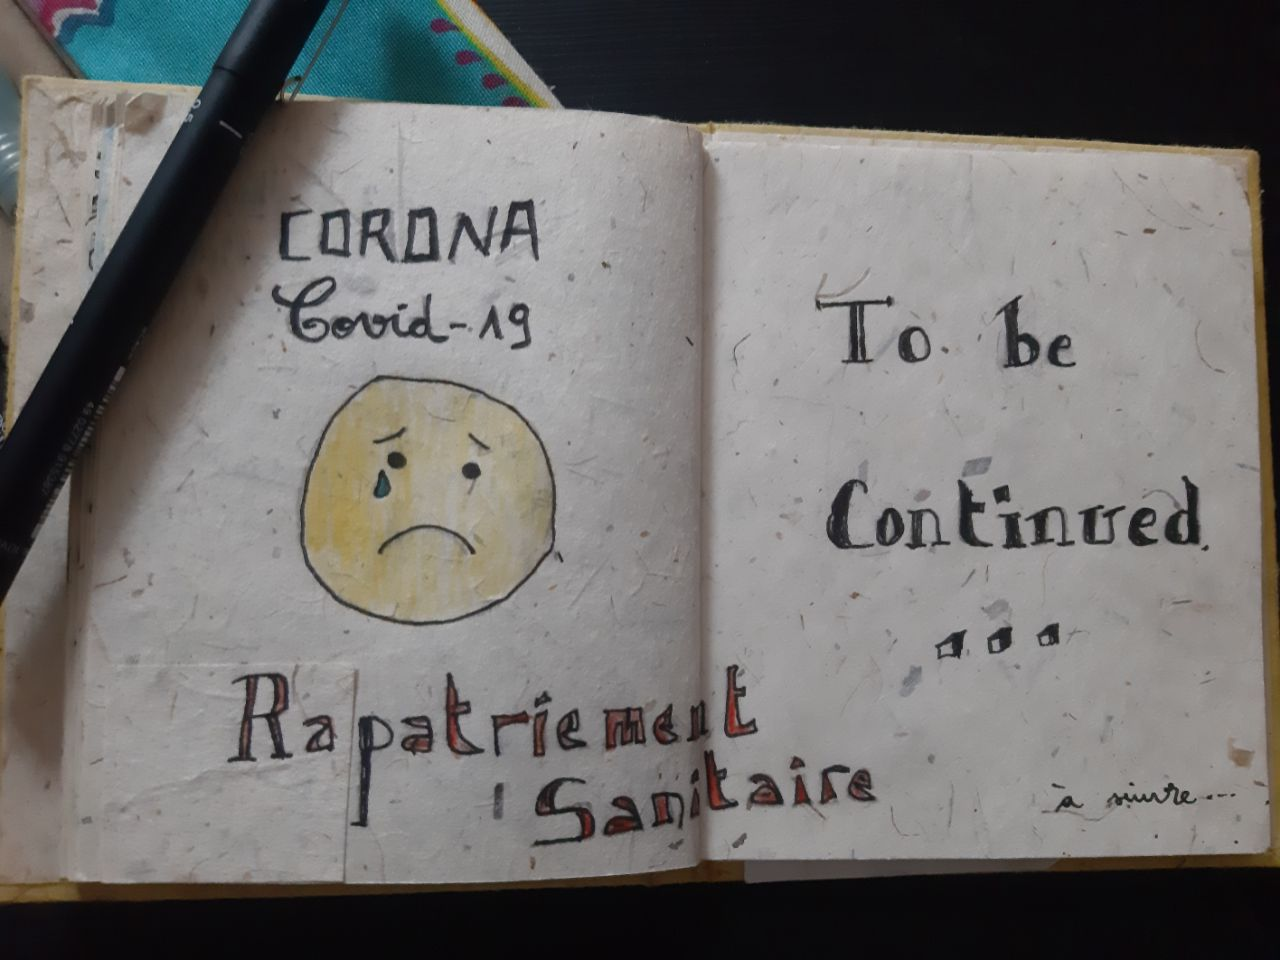 CORONA
Covid-19
Rapatriement
Sanitaire
To be
Continued
...
à suivre...